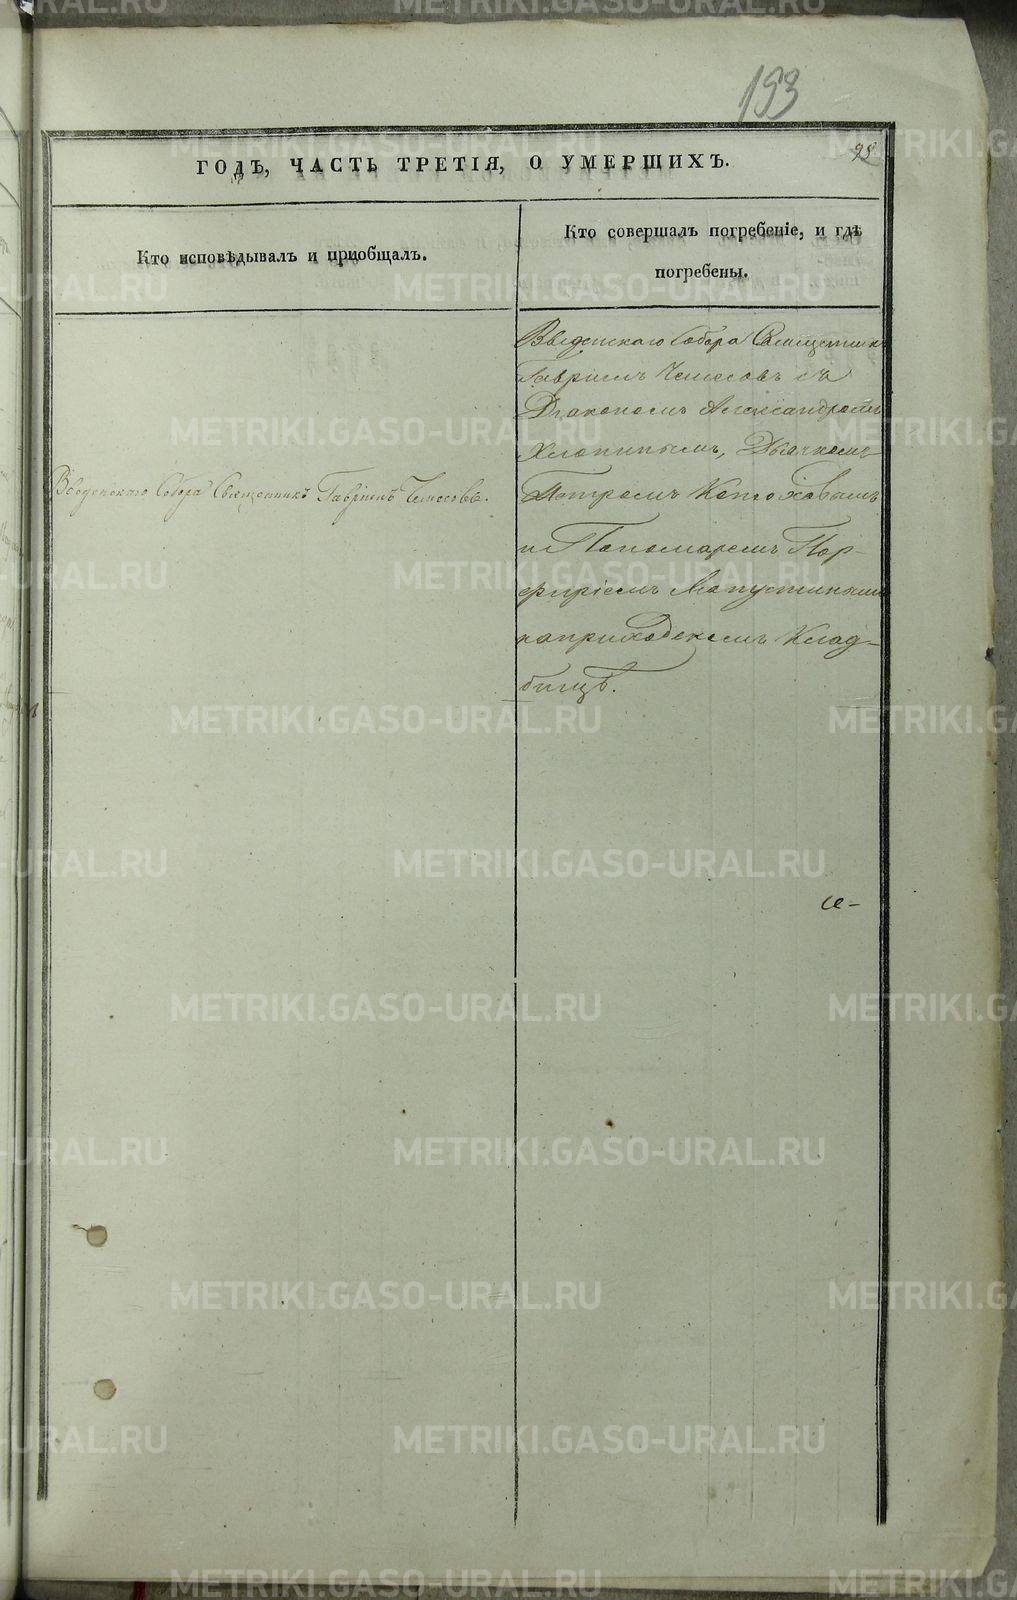 193
95
ГОДЪ, ЧАСТЬ ТРЕТІЯ, О УМЕРШИХЪ.
Кто исповѣдывалъ и приобщалъ.
Кто совершалъ погребеніе, и гдѣ
погребены.
Введенскаго Собора Священникъ Гавріилъ Чемесовъ.
Введенскаго Собора Священникъ
Гавріилъ Чемесовъ съ
Діакономъ Александромъ
Хлопинымъ, Дьячкомъ
Петромъ
и Пономаремъ Пор-
фиріемъ Лапустинымъ
на приходскомъ Клад-
бищѣ.
METRIKI.GASO-URAL.RU